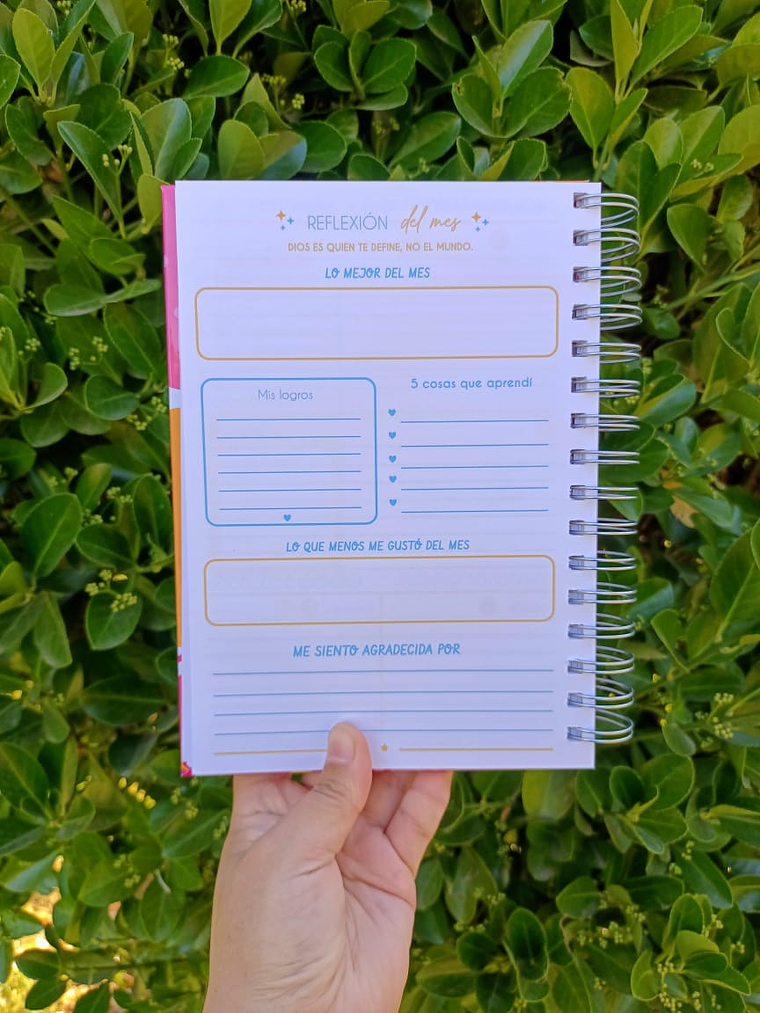 REFLEXIÓN del mes
DIOS ES QUIEN TE DEFINE, NO EL MUNDO.
LO MEJOR DEL MES
Mis logros
5 cosas que aprendí
LO QUE MENOS ME GUSTÓ DEL MES
ME SIENTO AGRADECIDA POR